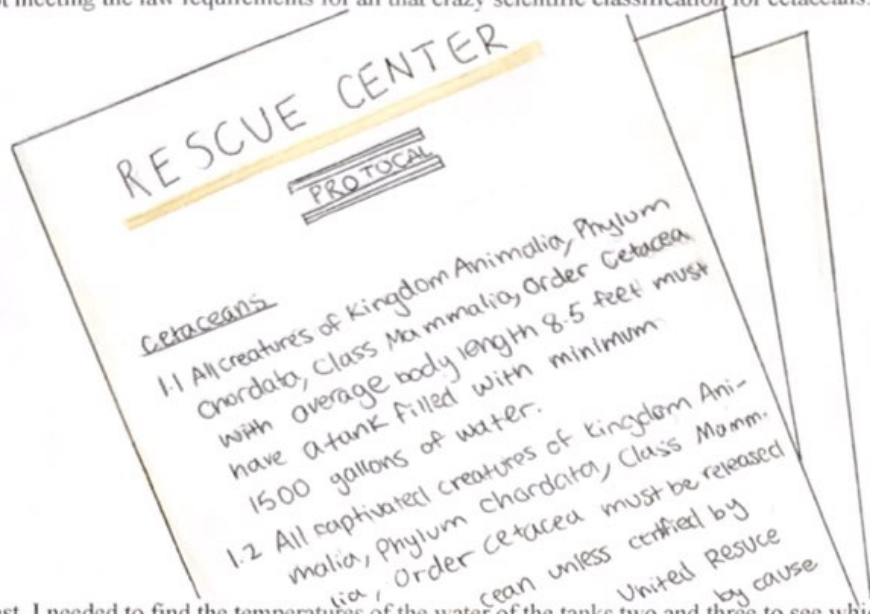 meeting the law requirements for all that crazy scientific classification for cetaceans.
RESCUE CENTER
PROTOCAL
Cetaceans
1.1 All creatures of Kingdom Animalia, Phylum
Chordata, Class Mammalia, Order Cetacea
with average body length 8.5 feet must
have a tank filled with minimum
1500 gallons of water.
1.2 All captivated creatures of Kingdom Ani-
malia, Phylum Chordata, Class Mamm-
lia, Order Cetacea must be released
cean unless certified by
United Resuce
by cause
I needed to find the temperatures of the water of the tanks two and three to see